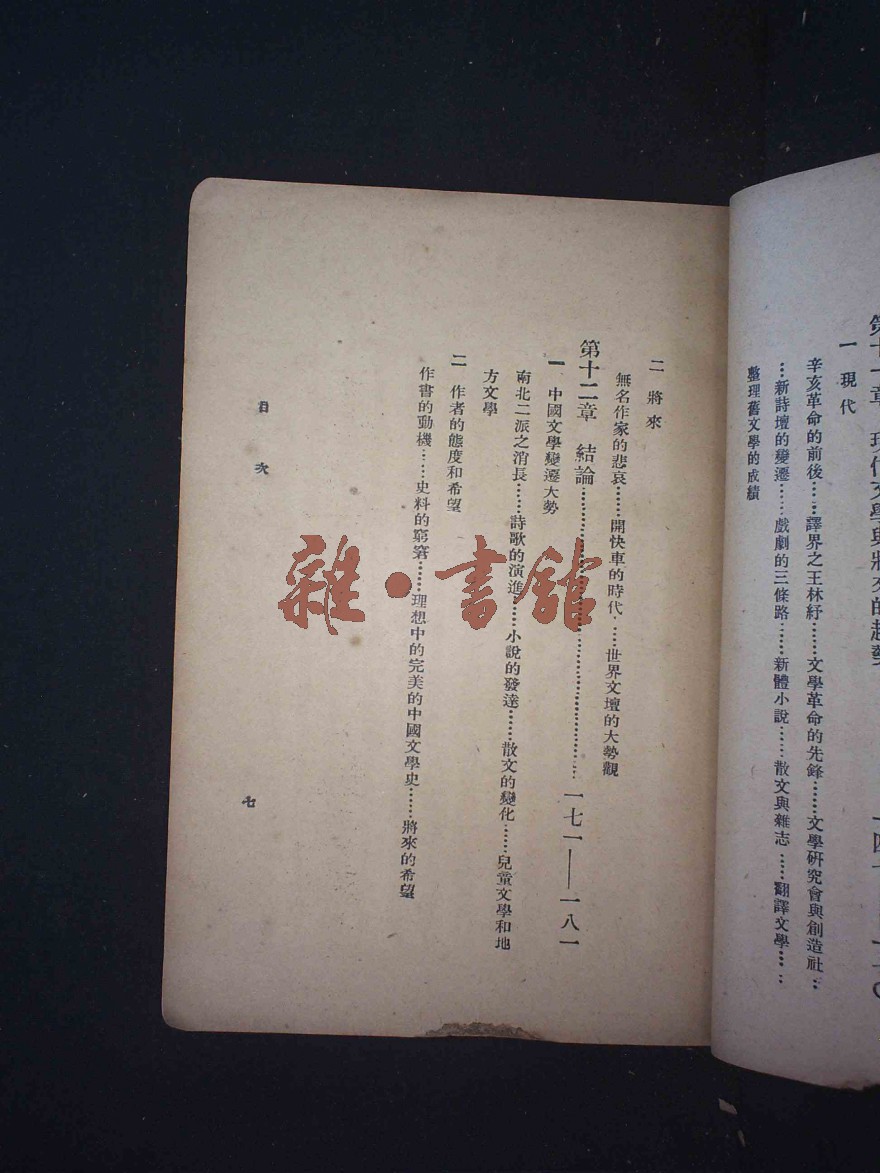 第十一章 現代文學與將來的趨勢
一 現代
辛亥革命的前後……譯界之王林紓……文學革命的先鋒……文學研究會與創造社‥
…新詩壇的變遷……戲劇的三條路……新體小說……散文與雜志……翻譯文學……
整理舊文學的成績
二 將來
無名作家的悲哀……開快車的時代……世界文壇的大勢觀
第十二章 結論……一七一——一八一
一 中國文學變遷大勢
南北二派之消長……詩歌的演進……小說的發達……散文的變化……兒童文學和地
方文學
二 作者的態度和希望
作書的動機……史料的窮窘……理想中的完美的中國文學史……將來的希望
目次
七
雜·書館